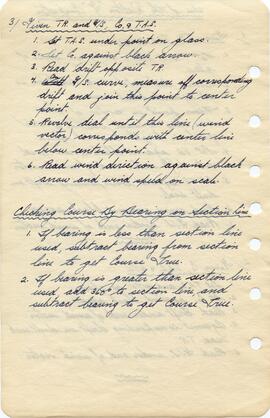 3/ Given TR. and G/S. Co. & T.A.S.
1. Set T.A.S. under point on glass.
2. Set Co. against black arrow.
3. Read drift opposite TR.
4. G/S. curve, measure off corresponding
drift and join this point to center
point.
5. Revolve dial until this line (wind
vector) corresponds with center line
below center point.
6. Read wind direction against black
arrow and wind speed on scale.
Checking Course By Bearing on Section line
1. If bearing is less than section line
used, subtract bearing from section
line to get Course True.
2. If bearing is greater than section line
used add 360° to section line, and
subtract bearing to get Course True.